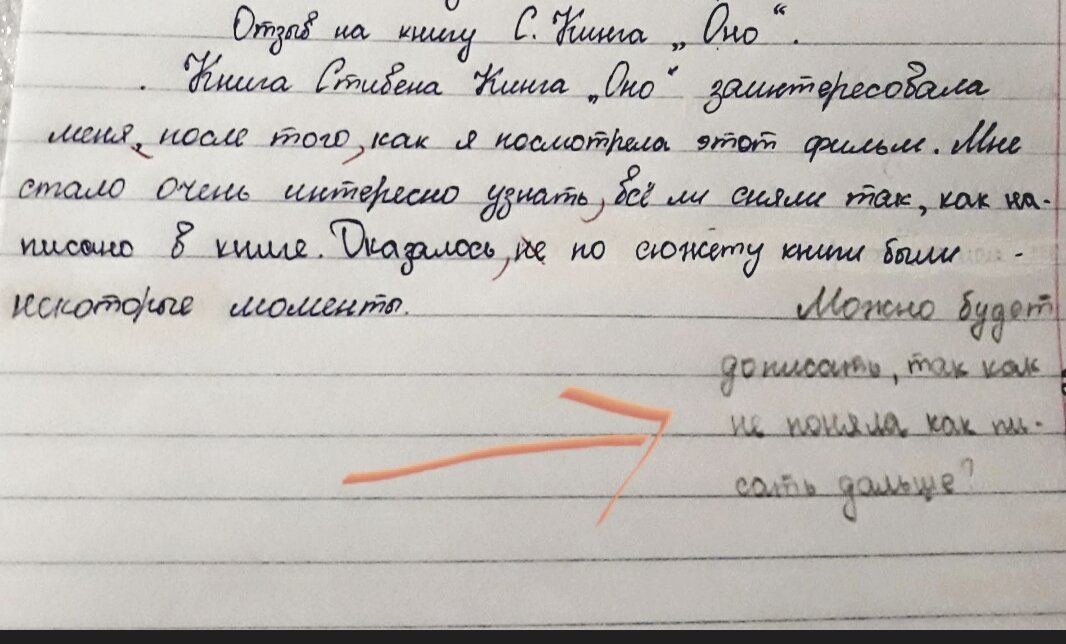 Отзыв на книгу С. Кинга „Оно“.
Книга Стивена Кинга „Оно“ заинтересовала
меня, после того, как я посмотрела этот фильм. Мне
стало очень интересно узнать, всё ли сняли так, как на-
писано в книге. Оказалось, не по сюжету книги были
некоторые моменты.
Можно будет
дописать, так как
не поняла как пи-
сать дальше?